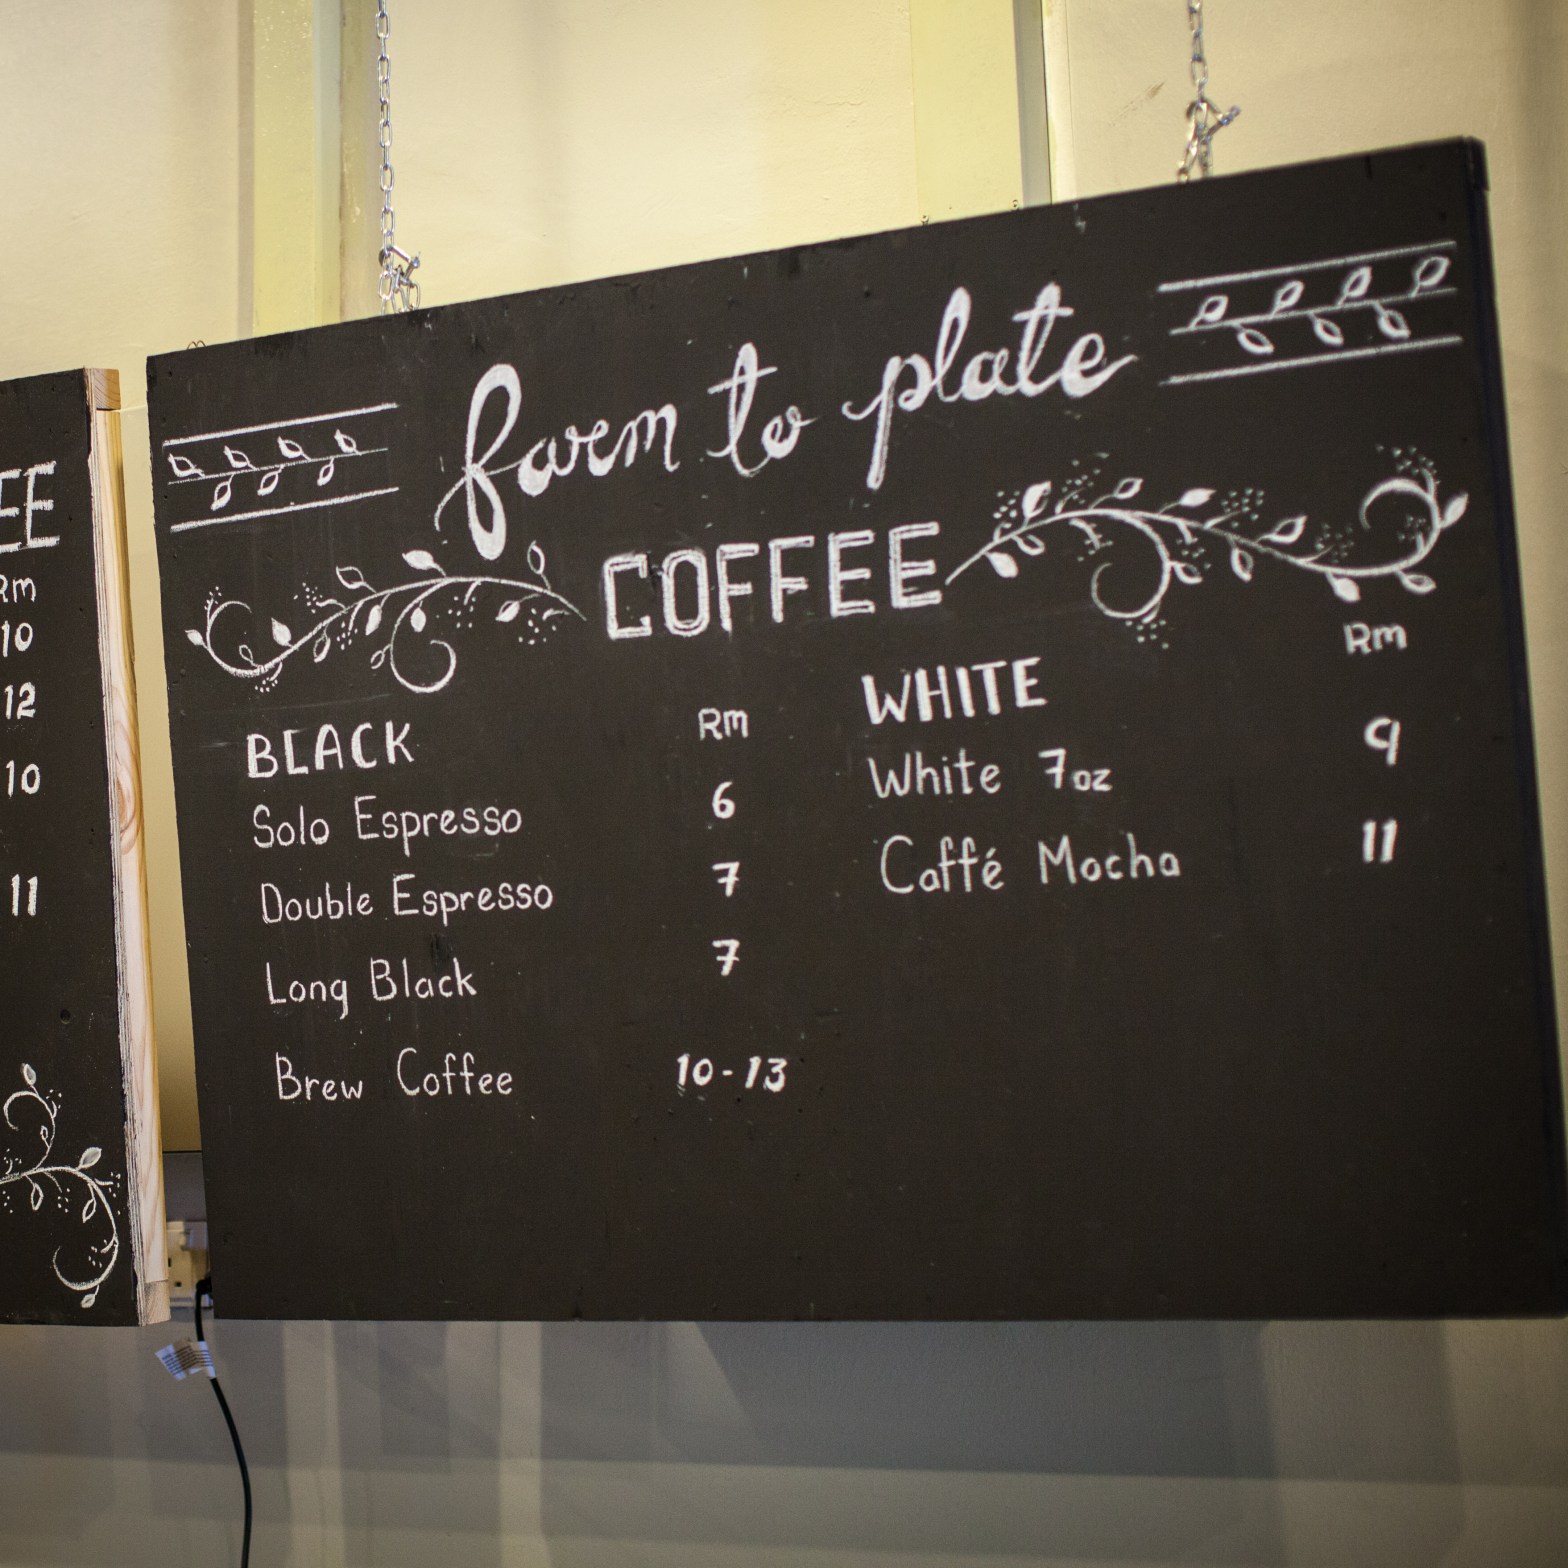 EE
Rm
10
12
10
11
farm to plate
COFFEE
BLACK Rm
Solo Espresso 6
Double Espresso 7
Long Black 7
Brew Coffee 10-13
WHITE Rm
White 7oz 9
Caffé Mocha 11